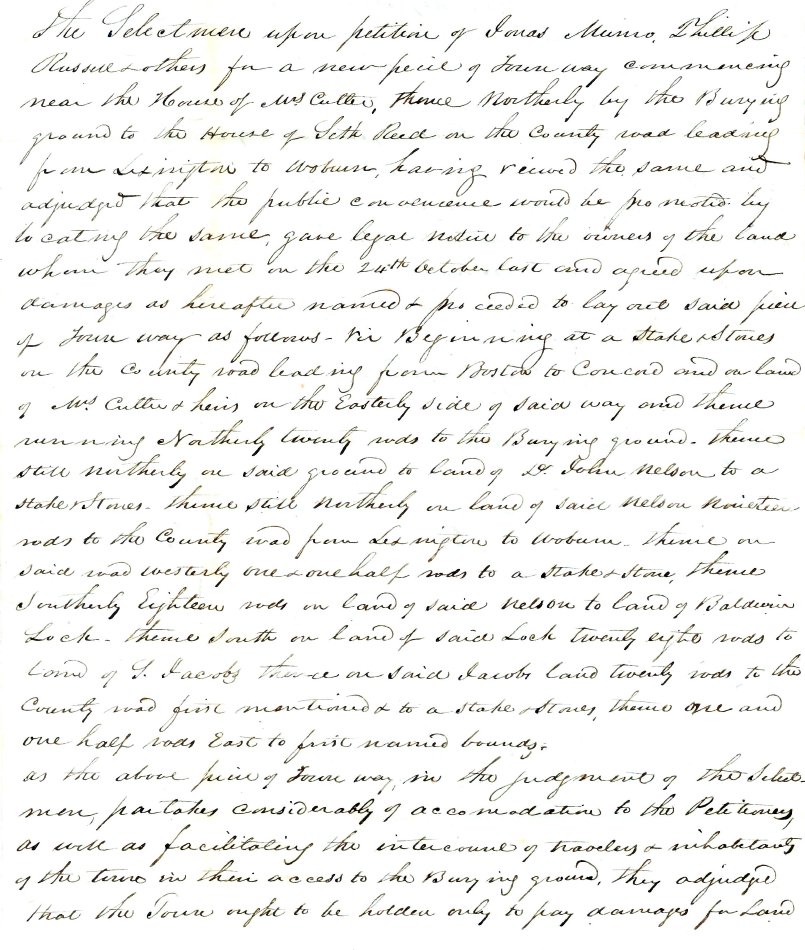 The Selectmen upon petition of Jonas Munro, Phillip
Russell & others for a new peice of Town way commencing
near the House of Mrs Cutler, thence Northerly by the Burying
ground to the House of Seth Reed on the County road leading
from Lexington to Woburn, having viewed the same and
adjudged that the public convenience would be promoted by
locating the same, gave legal notice to the owners of the land
whom they met on the 24th October last and agreed upon
damages as hereafter named & proceeded to lay out said piece
of Town way as follows - Viz Beginning at a Stake & Stones
on the County road leading from Boston to Concord and on land
of Mrs Cutler & heirs on the Easterly side of said way and thence
running Northerly twenty rods to the Burying ground - thence
still northerly on said ground to land of Dr. John Nelson to a
Stake & Stones - thence still Northerly on land of said Nelson Nineteen
rods to the County road from Lexington to Woburn - thence on
said road westerly one & one half rods to a Stake & Stone, thence
Southerly Eighteen rods on land of said Nelson to land of Baldwin
Lock - thence South on land of said Lock twenty eight rods to
land of S. Jacobs thence on said Jacobs land twenty rods to the
County road first mentioned & to a Stake & Stones, thence one and
one half rods East to first named bounds.
as the above piece of Town way, in the judgment of the Select-
men, partakes considerably of accomodation to the Petitioners,
as well as facilitating the intercourse of travelers & inhabitants
of the town in their access to the Burying ground, they adjudged
that the Town ought to be holden only to pay damages for Land